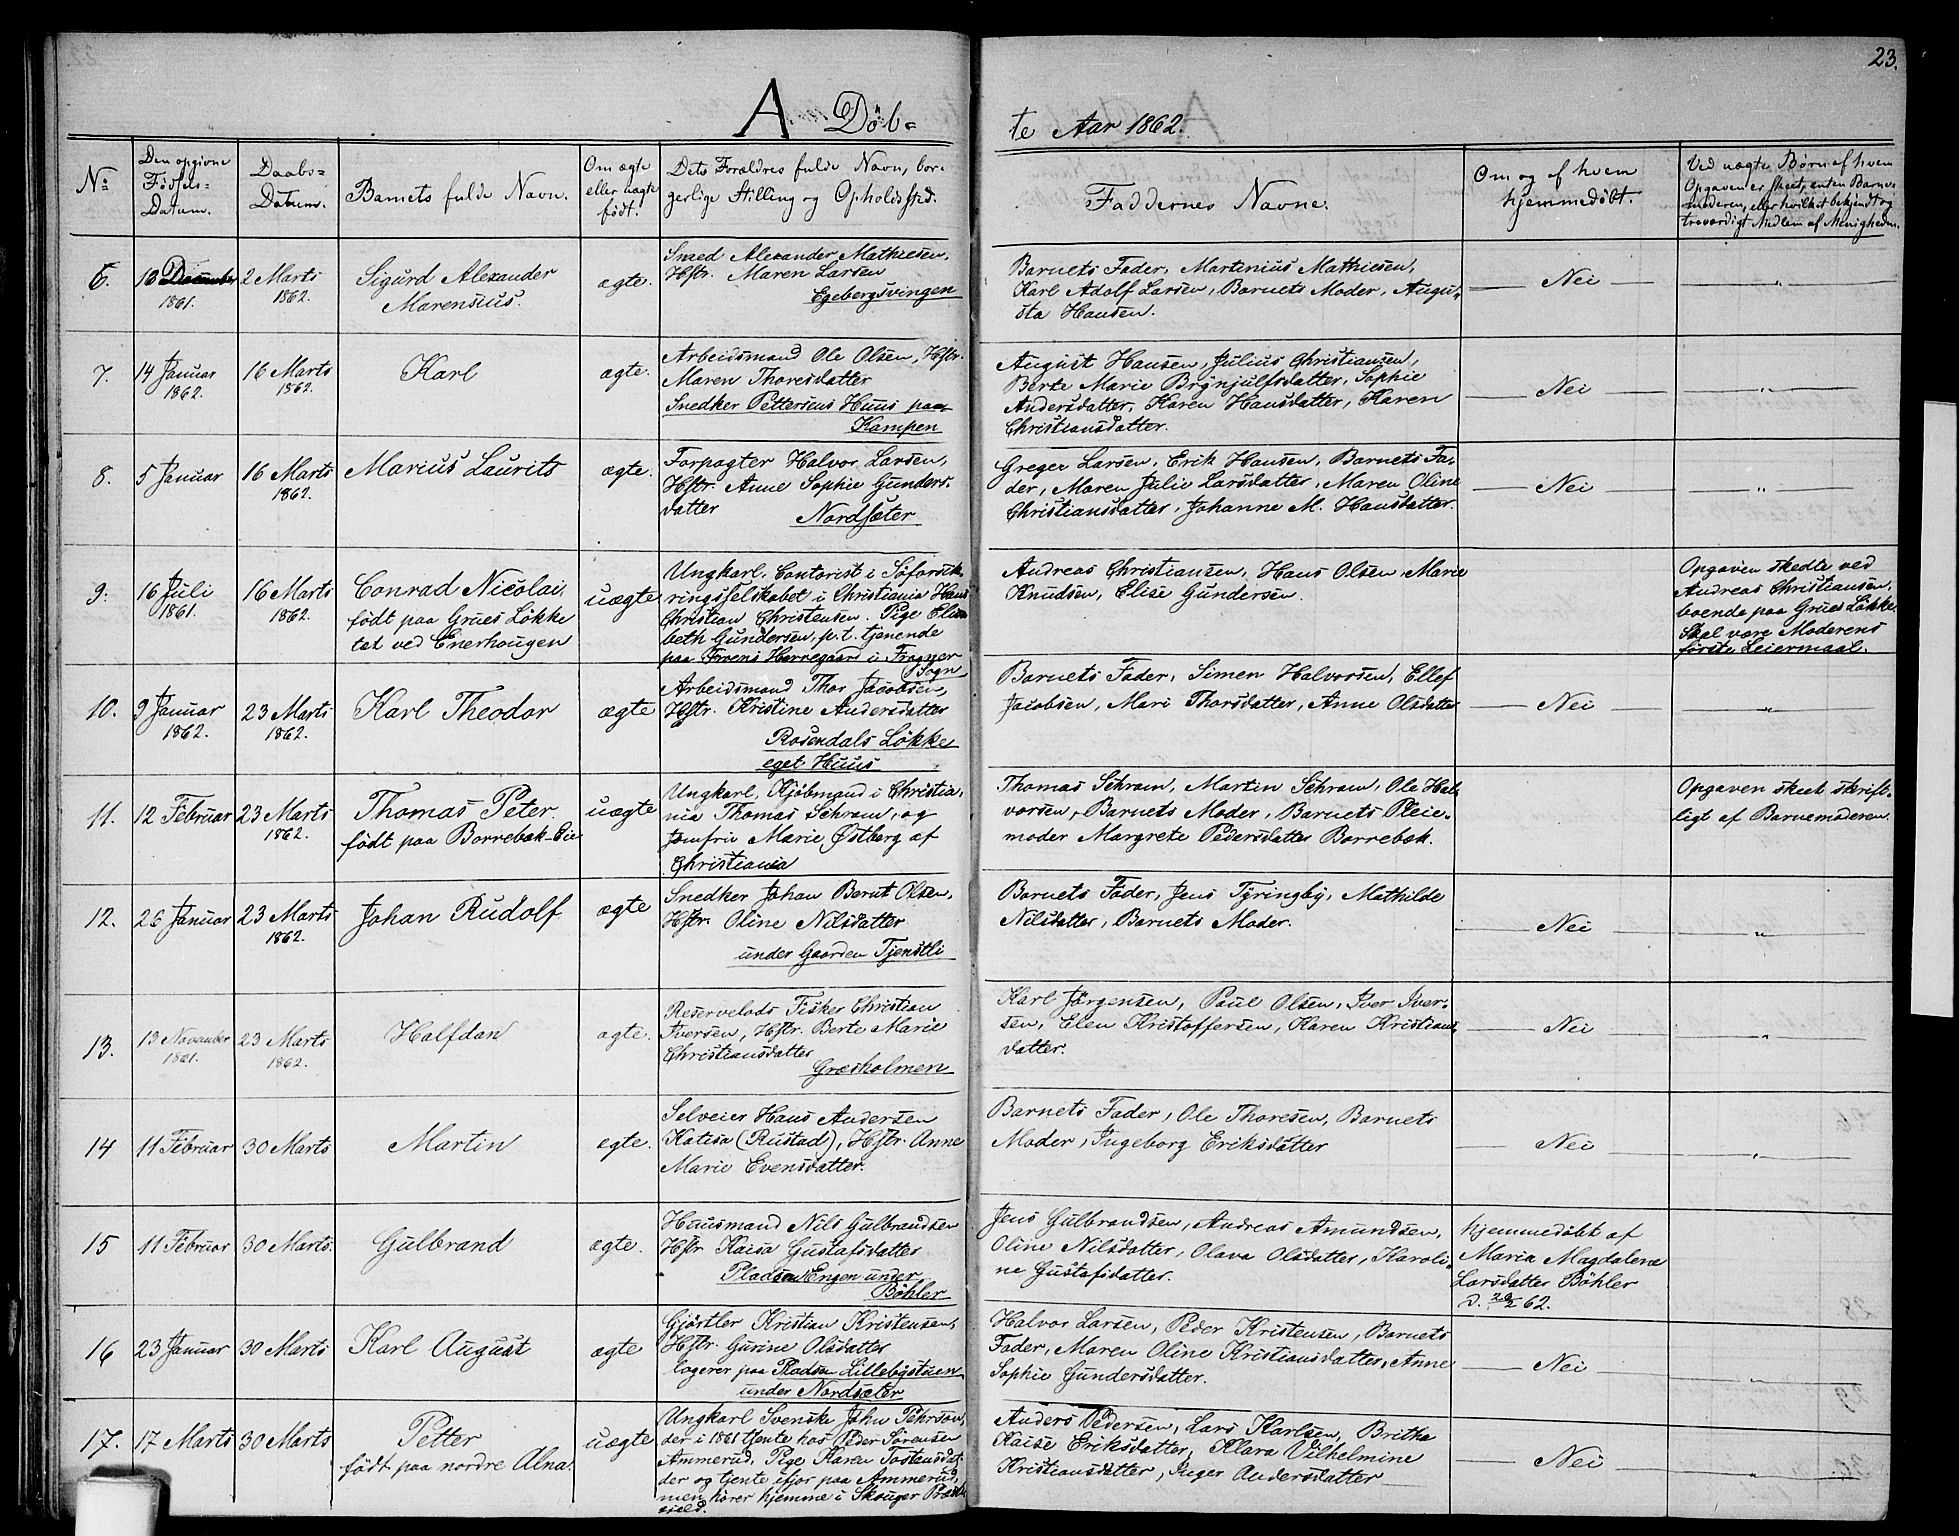 23.
A Døb-
te Aar 1862.
No
Den opgivne
Fødsels-
Datum.
Daabs-
Datum.
Barnets fulde Navn.
Om ægte
eller uægte
født.
Dets Forældres fulde Navn, bor-
gerlige Stilling og Opholdssted.
Faddernes Navne.
Om og af hvem
hjemmedøbt.
Ved uægte Børn af hvem
Opgaven er skeet, enten Barne-
moderen, eller hvilket bekjendt og
troværdigt Medlem af Menigheden.
6.
18 December
1861.
2 Marts
1862.
Sigurd Alexander
Marensius.
ægte.
Smed Alexander Mathiesen,
Hstr. Maren Larsen
Egebergsvingen
Barnets Fader, Martinius Mathiesen,
Karl Adolf Larsen, Barnets Moder, Augu-
sta Hansen.
Nei
"
7.
14 Januar
1862.
16 Marts
1862.
Karl
ægte.
Arbeidsmand Ole Olsen, Hstr.
Maren Thoresdatter
Snedker Pettersens Huus paa
Kampen
August Hansen, Julius Christiansen,
Berte Marie Brynjulfsdatter, Sophie
Andersdatter, Karen Hansdatter, Karen
Christiansdatter.
Nei
"
8.
5 Januar
16 Marts
1862.
Marius Laurits
ægte.
Forpagter Halvor Larsen,
Hstr. Anne Sophie Gunders-
datter
Nordsæter
Greger Larsen, Erik Hansen, Barnets Fa-
der, Maren Julie Larsdatter, Maren Oline
Christiansdatter, Johanne M. Hansdatter.
Nei
"
9.
16 Juli
1861.
16 Marts
1862.
Conrad Nicolai,
født paa Grües Løkke
tæt ved Enerhougen
uægte
Ungkarl, Contorist i Søforsik-
ringsselskabet i Christiania Hans
Christian Christensen. Pige Elisa
beth Gundersen, p. t. tjenende
paa Herregaard i Fragner
Sogn
Andreas Christiansen, Hans Olsen, Marie
Knudsen, Elise Gundersen.
Opgaven skedte ved
Andreas Christiansen,
boende paa Grües Løkke.
Skal være Moderens
første Leiermaal.
10.
9 Januar
1862.
23 Marts
1862.
Karl Theodor
ægte
Arbeidsmand Thor Jacobsen,
Hstr. Kristine Andersdatter
Rosendals Løkke
eget Huus
Barnets Fader, Simen Halvorsen, Ellef
Jacobsen, Mari Thorsdatter, Anne Olsdatter
Nei
"
11.
12 Februar
23 Marts
1862.
Thomas Peter.
født paa Borrebæk-Eie
uægte
Ungkarl, Kjøbmand i Christia-
nia Thomas Schram, og
Jomfru Marie Østberg af
Christiania
Thomas Schram, Martin Schram, Ole Hal
vorsen, Barnets Moder, Barnets Pleie-
moder Margrete Pedersdatter Borrebæk.
Opgaven skeet skrift-
ligt af Barnemoderen.
12.
26 Januar
23 Marts
1862.
Johan Rudolf
ægte
Snedker Johan Bernt Olsen,
Hstr. Oline Nilsdatter
under Gaarden Tjenstli
Barnets Fader, Jens Tyringby, Mathilde
Nilsdatter, Barnets Moder.
Nei
"
13.
13 November
1861.
23 Marts
1862.
Halfdan
ægte.
Reservelods Fisker Christian
Iversen, Hstr. Berte Marie
Christiansdatter
Græsholmen
Karl Jørgensen, Paul Olsen, Iver Iver-
sen, Elen Kristoffersen, Karen Kristians
datter.
Nei
"
14
11 Februar
30 Marts
Martin
ægte.
Selveier Hans Andersen
Katisa (Rustad), Hstr. Anne
Marie Evensdatter.
Barnets Fader, Ole Thoresen, Barnets
Moder, Ingeborg Eriksdatter
Nei
"
15
11 Februar
30 Marts.
Gulbrand
ægte.
Huusmand Nils Gulbrandsen
Hstr Kaisa Gustafsdatter
Pladsen Engen under
Bøhler
Jens Gulbrandsen, Andreas Amundsen,
Oline Nilsdatter, Olava Olsdatter, Karoli-
ne Gustafsdatter.
hjemmedøbt af
Maria Magdalena
Larsdatter Bøhler
d. 62.
16
23 Januar
30 Marts
Karl August
ægte
Gjørtler Kristian Kristensen,
Hstr. Gurine Olsdatter
logerer paa Pladsen Lillebystuen
under Nordsæter
Halvor Larsen, Peder Kristensen, Barnets
Fader, Maren Oline Kristiansdatter, Anne
Sophie Gundersdatter.
Nei
"
17.
17 Marts
30 Marts
Petter
født paa nordre Alna.
uægte
Ungkarl Svenske John Pehrson,
der i 1861 tjente hos Peder Sørensen
Ammerud, Pige Karen Tostensdat-
der og tjente ifjor paa Ammerud,
men hører hjemme i Skouger Præste
gjeld.
Anders Pedersen, Lars Karlsen, Britha
Kaise Eriksdatter, Klara Vilhelmine
Kristiansdatter, Inger Andersdatter
Nei
"